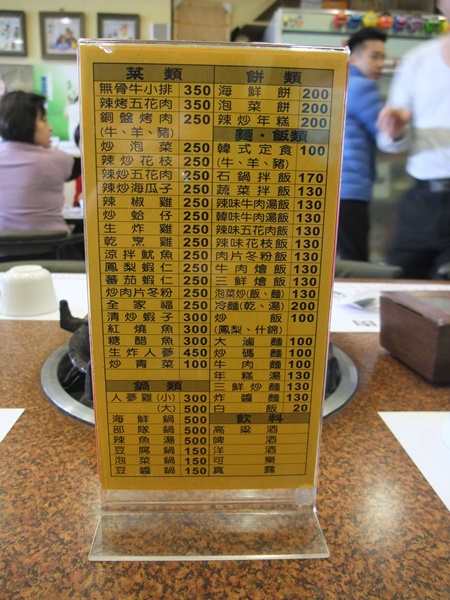 菜類
無骨牛小排 350
辣烤五花肉 350
銅盤烤肉 250
(牛、羊、豬)
炒泡菜 250
辣炒花枝 250
辣炒五花肉 250
辣炒海瓜子 250
辣椒雞 250
炒蛤仔 250
生炸雞 250
乾烹雞 250
涼拌魷魚 250
鳳梨蝦仁 250
蕃茄蝦仁 250
炒肉片冬粉 250
全家福 250
清炒蝦子 300
紅燒魚 300
糖醋魚 300
生炸人參 450
炒青菜 100
鍋類
人參雞(小) 300
(大) 500
海鮮鍋 500
部隊鍋 500
辣魚湯 500
豆腐鍋 150
泡菜鍋 150
豆醬鍋 150
餅類
海鮮餅 200
泡菜餅 200
辣炒年糕 200
麵·飯類
韓式定食 100
(牛、羊、豬)
石鍋拌飯 170
蔬菜拌飯 130
辣味牛肉湯飯 130
韓味牛肉湯飯 130
辣味五花肉飯 130
辣味花枝飯 130
肉片冬粉飯 130
牛肉燴飯 130
三鮮燴飯 130
泡菜炒(飯、麵) 130
冷麵(乾、湯) 200
炒飯 100
(鳳梨、什錦)
大滷麵 100
炒碼麵 100
牛肉麵 100
年糕湯 130
三鮮炒麵 130
炸醬麵 130
白飯 20
飲料
高粱酒
啤酒
洋酒
可樂
真露